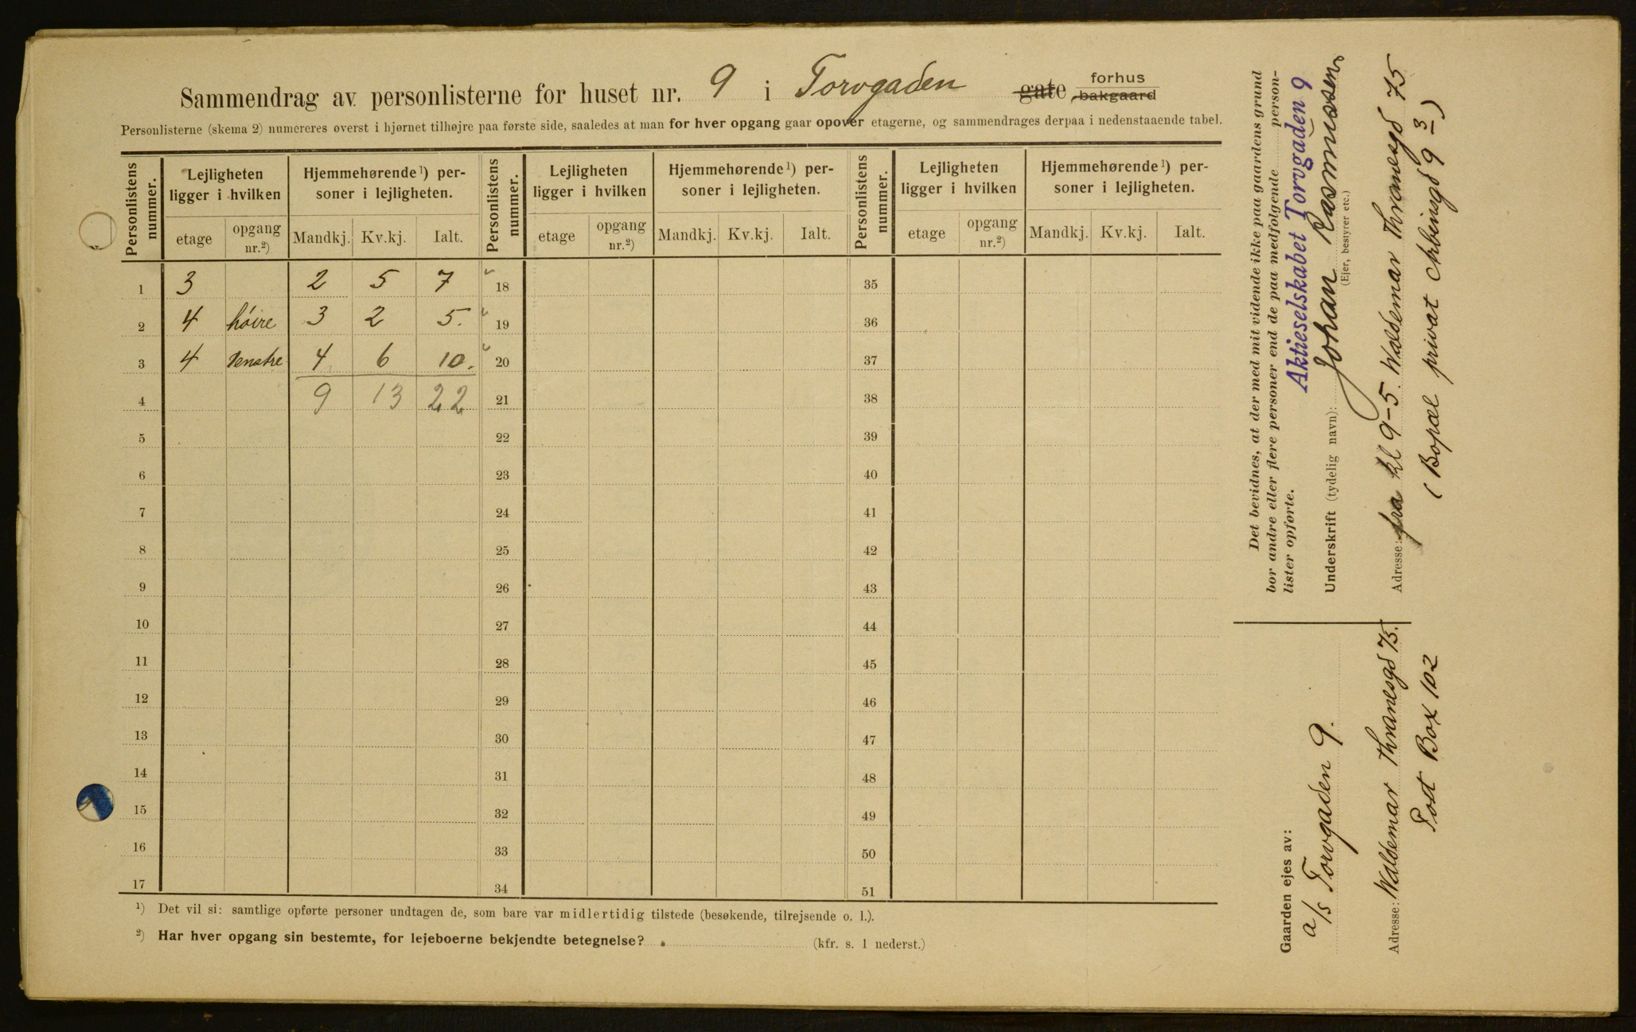 Sammendrag av personlisterne for huset nr. 9 i Torvgaden gate forhus bakgaard
Personlisterne (skema 2) numereres øverst i hjørnet tilhøjre paa første side, saaledes at man for hver opgang gaar opover etagerne, og sammendrages derpaa i nedenstaaende tabel.
Personlistens nummer. Lejligheten ligger i hvilken Hjemmehørende¹) personer i lejligheten. Personlistens nummer. Lejligheten ligger i hvilken Hjemmehørende¹) personer i lejligheten. Personlistens nummer. Lejligheten ligger i hvilken Hjemmehørende¹) personer i lejligheten.
etage opgang nr.²) Mandkj. Kv.kj. Ialt. etage opgang nr.²) Mandkj. Kv.kj. Ialt. etage opgang nr.²) Mandkj. Kv.kj. Ialt.
1 3 2 5 7 18 35
2 4 høire 3 2 5. 19 36
3 4 Venstre 4 6 10. 20 37
4 9 13 22 21 38
5 22 39
6 23 40
7 24 41
8 25 42
9 26 43
10 27 44
11 28 45
12 29 46
13 30 47
14 31 48
15 32 49
16 33 50
17 34 51
¹) Det vil si: samtlige opførte personer undtagen de, som bare var midlertidig tilstede (besøkende, tilrejsende o. l.).
²) Har hver opgang sin bestemte, for lejeboerne bekjendte betegnelse? (kfr. s. 1 nederst.)
Det bevidnes, at der med mit vidende ikke paa gaardens grund
bor andre eller flere personer end de paa medfølgende personlister opførte.
Aktieselskabet Torvgaden 9
Underskrift (tydelig navn): Johan Rasmussen
(Ejer, bestyrer etc.)
Adresse: fra kl 9-5. Waldemar Thranesgd 75
(Bopæl privat Arbinsgd 9 3)
Gaarden ejes av:
a/s Torvgaden 9.
Adresse: Waldemar Thranesgd 75.
Post Box 102